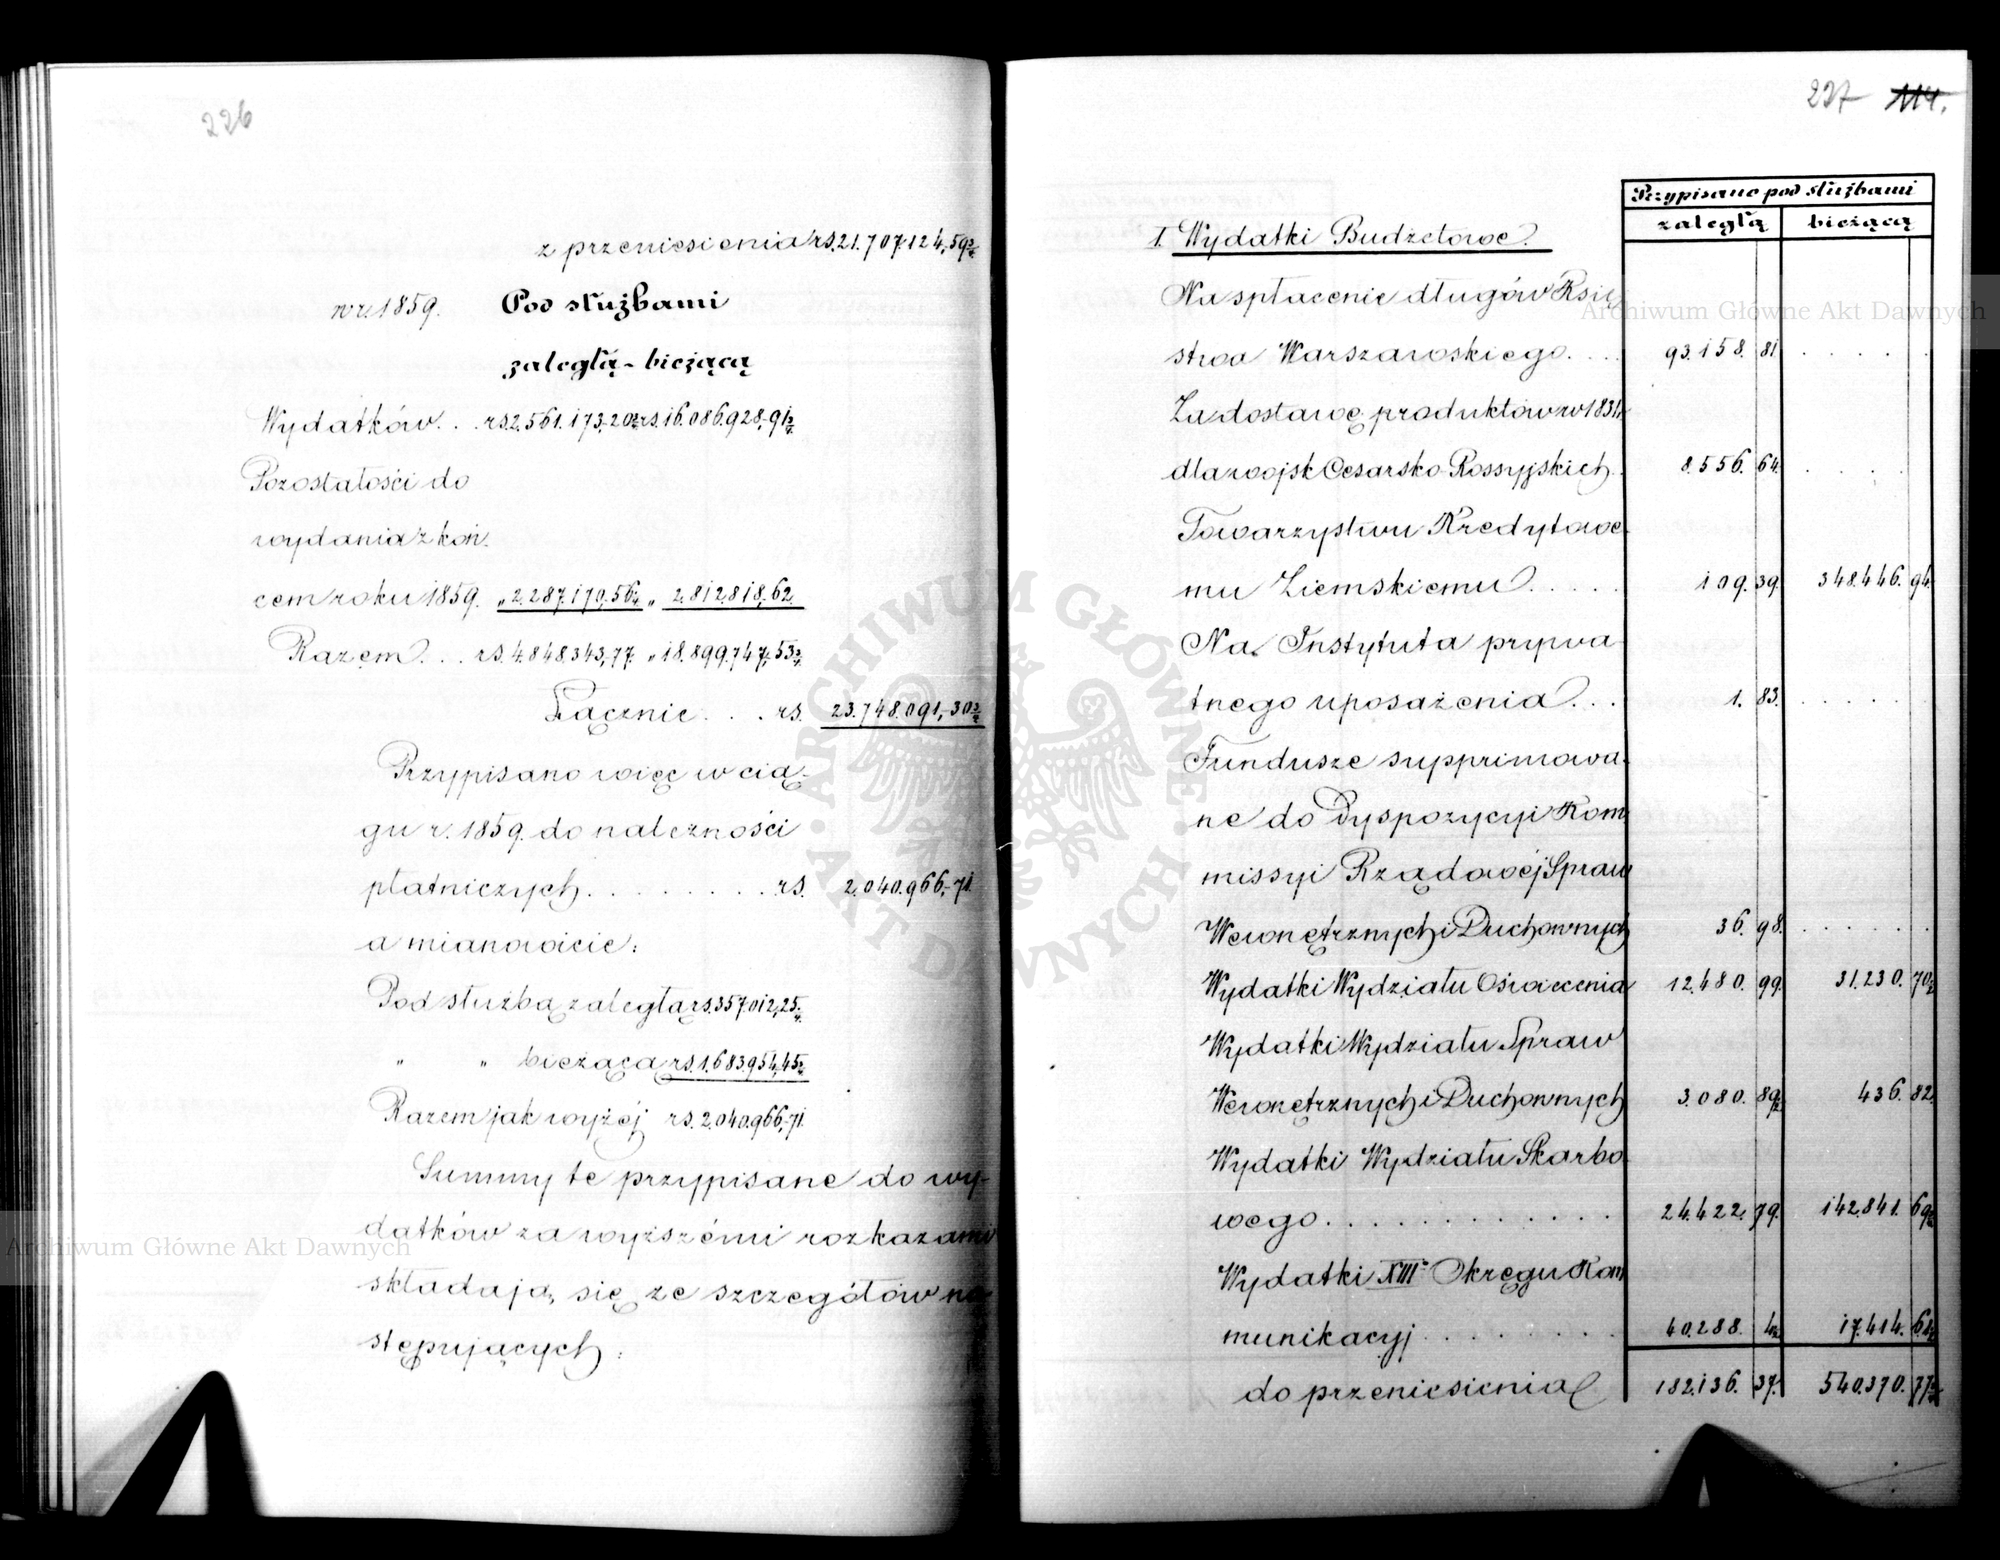 226
z przeniesienia rs. 21.707.124,59¾
w r. 1859. Pod służbami
zaległą - bieżącą
Wydatków . . rs. 2.561.173,20¾ rs. 16.086.928,91½
Pozostałości do
wydania z koń-
cem roku 1859. „ 2.287.170,56¼ „ 2.812.818,62.
Razem . . . rs. 4.848.343,77. „ 18.899.747,53¾
Łącznie . . . rs. 23.748.091,30¾
Przypisano więc w cią-
gu r. 1859. do należności
płatniczych . . . . . . . . . rs. 2.040.966,71.
a mianowicie:
Pod służbą zaległą rs. 357.012,25¼
„ „ bieżącą rs. 1.683.954,45¾
Razem jak wyżej rs. 2.040.966,71.
Summy te przypisane do wy-
datków za wyższémi rozkazami
składają się ze szczegółów na-
stępujących:
227 114.
Przypisano pod służbami
zaległą bieżącą
I. Wydatki Budżetowe.
Na spłacenie długów Księ-
stwa Warszawskiego. . . . 93.158. 81. . . . . .
Za dostawę produktów w 1831 r.
dla wojsk Cesarsko-Rossyjskich. 8.556. 64. . . . .
Towarzystwu Kredytowe-
mu Ziemskiemu . . . . . 109. 39. 348.446. 94.
Na Instytuta prywa-
tnego uposażenia . . . 1. 83. . . . . .
Fundusze supprimowa-
ne do Dyspozycyi Kom-
missyi Rządowéj Spraw
Wewnętrznych i Duchownych 36. 98. . . . . . .
Wydatki Wydziału Oświecenia 12.480. 99. 31.230. 70½
Wydatki Wydziału Spraw
Wewnętrznych i Duchownych 3.080. 89½ 436. 82.
Wydatki Wydziału Skarbo-
wego . . . . . . . . . . . . . 24.422. 79. 142.841. 69½
Wydatki XIII° Okręgu Kom-
munikacyj . . . . . . . . . 40.288. 4½ 17.414. 61½
do przeniesienia 182.136. 37. 540.370. 77¾
Archiwum Główne Akt Dawnych
Archiwum Główne Akt Dawnych
ARCHIWUM GŁÓWNE · AKT DAWNYCH ·